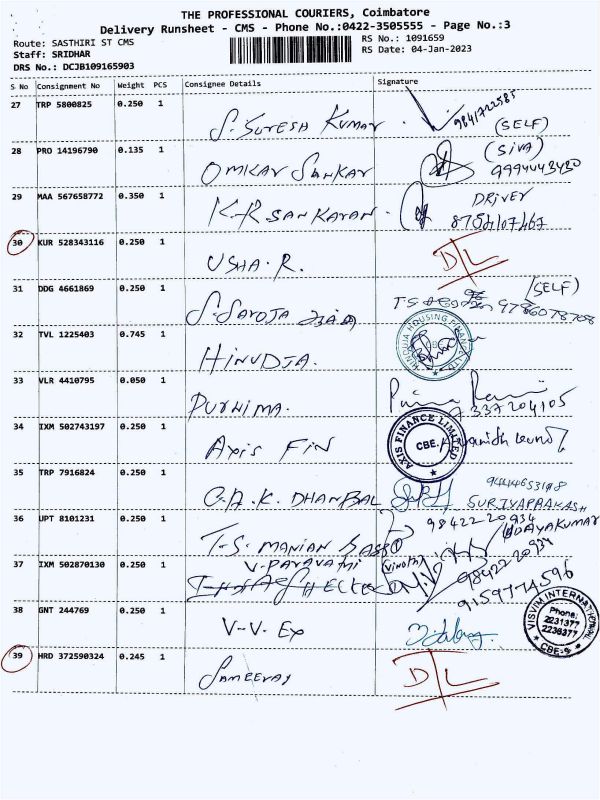 THE PROFESSIONAL COURIERS, Coimbatore
Delivery Runsheet - CMS - Phone No.:0422-3505555 - Page No.:3
Route: SASTHIRI ST CMS
Staff: SRIDHAR
DRS No.: DCJB109165903
RS No.: 1091659
RS Date: 04-Jan-2023
S No Consignment No Weight PCS Consignee Details Signature
27 TRP 5800825 0.250 1 S. SURESH KUMAR. 9841722585 (SELF)
28 PRO 14196790 0.135 1 OMKAR SANKAR (SIVA) 9994443430
29 MAA 567658772 0.350 1 K.R. SANKARAN. DRIVER
30 KUR 528343116 0.250 1 USHA. R. D/L
31 DDG 4661869 0.250 1 S. SAROJA (SELF) 9786078708
32 TVL 1225403 0.745 1 HINUDJA. HINDUJA HOUSING FINANCE LTD
33 VLR 4410795 0.050 1 PURNIMA. 7337204105
34 IXM 502743197 0.250 1 AXIS FIN AXIS FINANCE LIMITED CBE.
35 TRP 7916824 0.250 1 DHANBAL SURIYAPRAKASH
36 UPT 8101231 0.250 1 T.S. MANIAN 98422-20934 UDAYAKUMAR
37 IXM 502870130 0.250 1 V. PARAVATHI Vinoth 98422 20934
9159774596
38 GNT 244769 0.250 1 V.V. EX VISVIM INTERNATIONAL Phone: 2231377 2236377 CBE-9
39 HRD 372590324 0.245 1 SAMEERAJ D/L